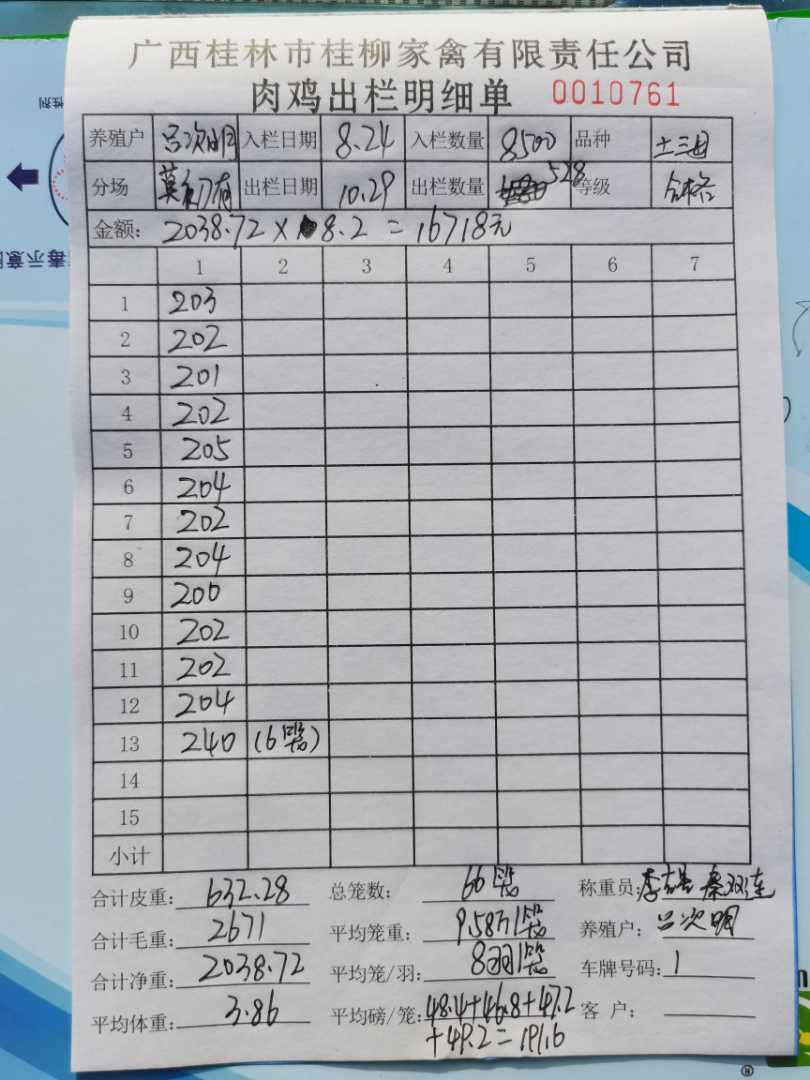 广西桂林市桂柳家禽有限责任公司
肉鸡出栏明细单 0010761
养殖户 吕次明 入栏日期 8.24 入栏数量 8500 品种 土三
分场 莫初有 出栏日期 10.29 出栏数量 528 等级 合格
金额: 2038.72 × 8.2 = 16718元
1 2 3 4 5 6 7
1 203
2 202
3 201
4 202
5 205
6 204
7 202
8 204
9 200
10 202
11 202
12 204
13 240 (6笼)
14
15
小计
合计皮重: 632.28 总笼数: 66笼 称重员: 秦双连
合计毛重: 2671 平均笼重: 9.58斤/笼 养殖户: 吕次明
合计净重: 2038.72 平均笼/羽: 8羽/笼 车牌号码: 1
平均体重: 3.86 平均磅/笼: 48.4+46.8+47.2 客 户:
+49.2=191.6
毒示意
性剂
®